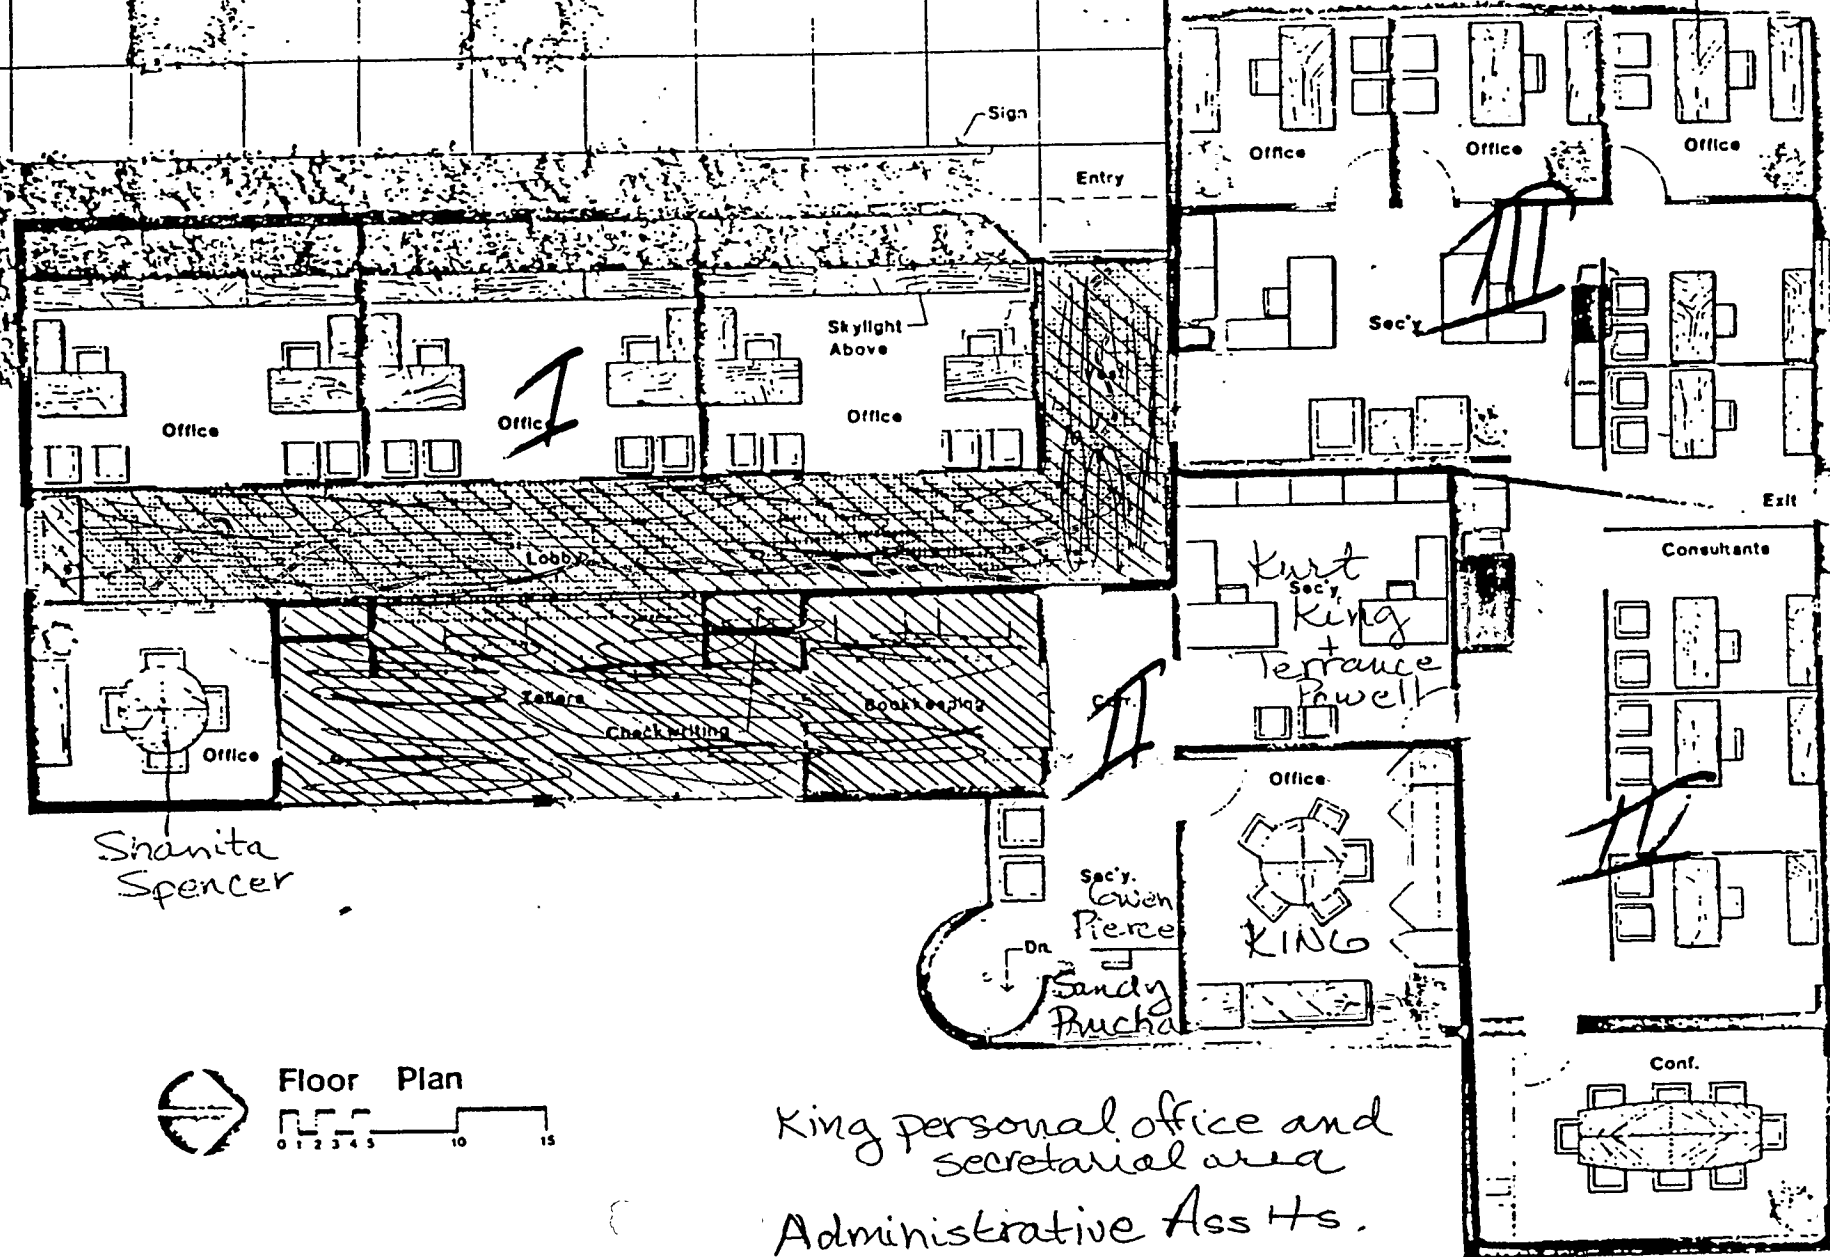 Sign
Entry
Office
Office
Office
Skylight
Above
Sec'y
Office
Office
Office
I
III
Exit
Lobby
Consultants
Kurt
Sec'y.
King
+
Terrance
Powell
Tellers
Checkwriting
Bookkeeping
Corr.
II
Office
Office
Shanita
Spencer
Sec'y.
Gwen
Pierce
KING
Dn.
Sandy
Prucha
Conf.
Floor Plan
0 1 2 3 4 5 10 15
King personal office and
secretarial area
Administrative Ass'ts.